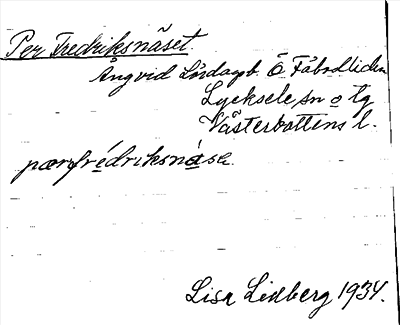 Per Fredriksnäset.
Ång vid Lördagsb. Ö Fäbodliden
Lycksele sn o tg
Västerbottens l.
pærfrédriksnǻse
Lisa Lidberg 1934.